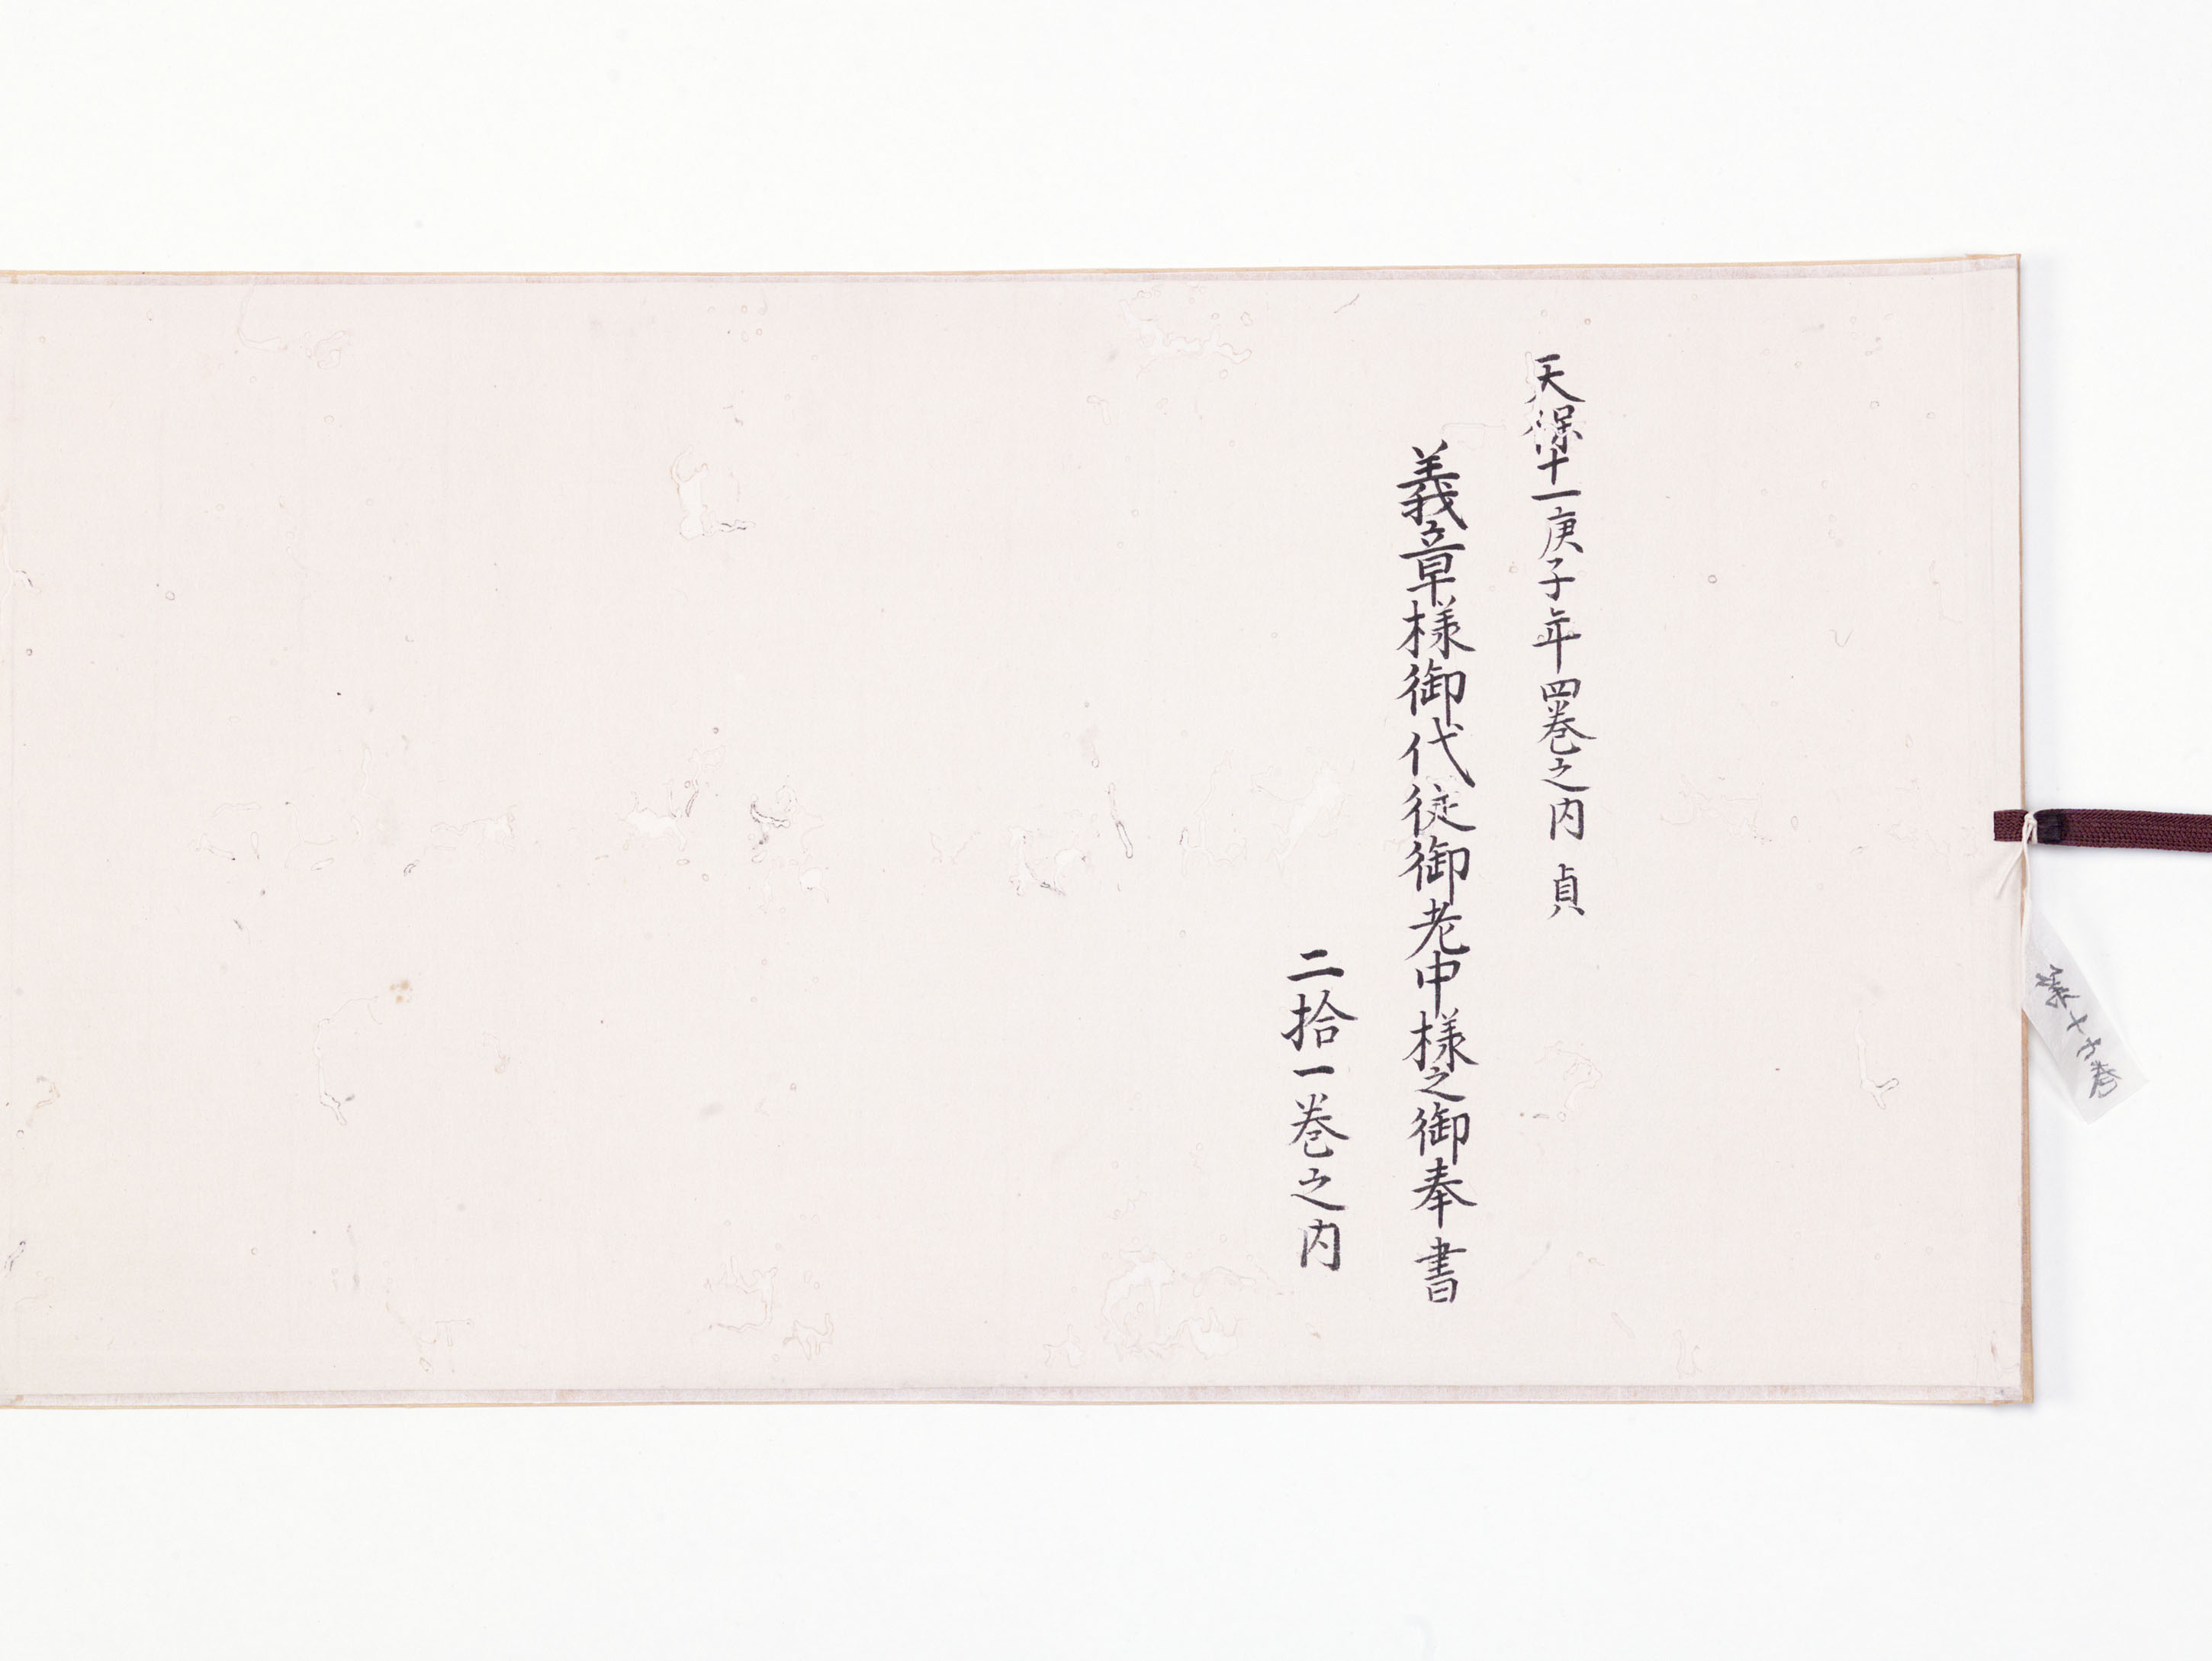 天保十一庚子年四巻之内 貞
義章様御代従御老中様之御奉書
二拾一巻之内